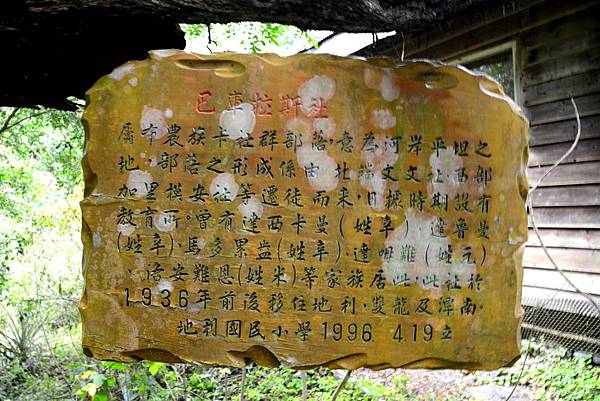 巴庫拉斯社
屬布農族卡社群部落,意為河岸平坦之
地,部落之形成係由 社
加里摸安社等遷徒而來,日據時期設有
教育所。曾有達西卡曼(姓辜),達魯曼
(姓辜),馬多累盎(姓辜),達 難(姓元)
安難恩(姓米)等家族居此,此社於
1936年前後移住地利,雙龍及潭南。
地利國民小學1996 4.19立